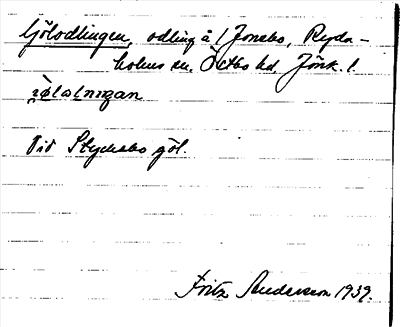 Gölodlingen, odling å 1 Jonsbo, Ryda-
holms sn. Östbo hd. Jönk. l.
Vid Stychsbo göl.
Fritz Andersson 1939.